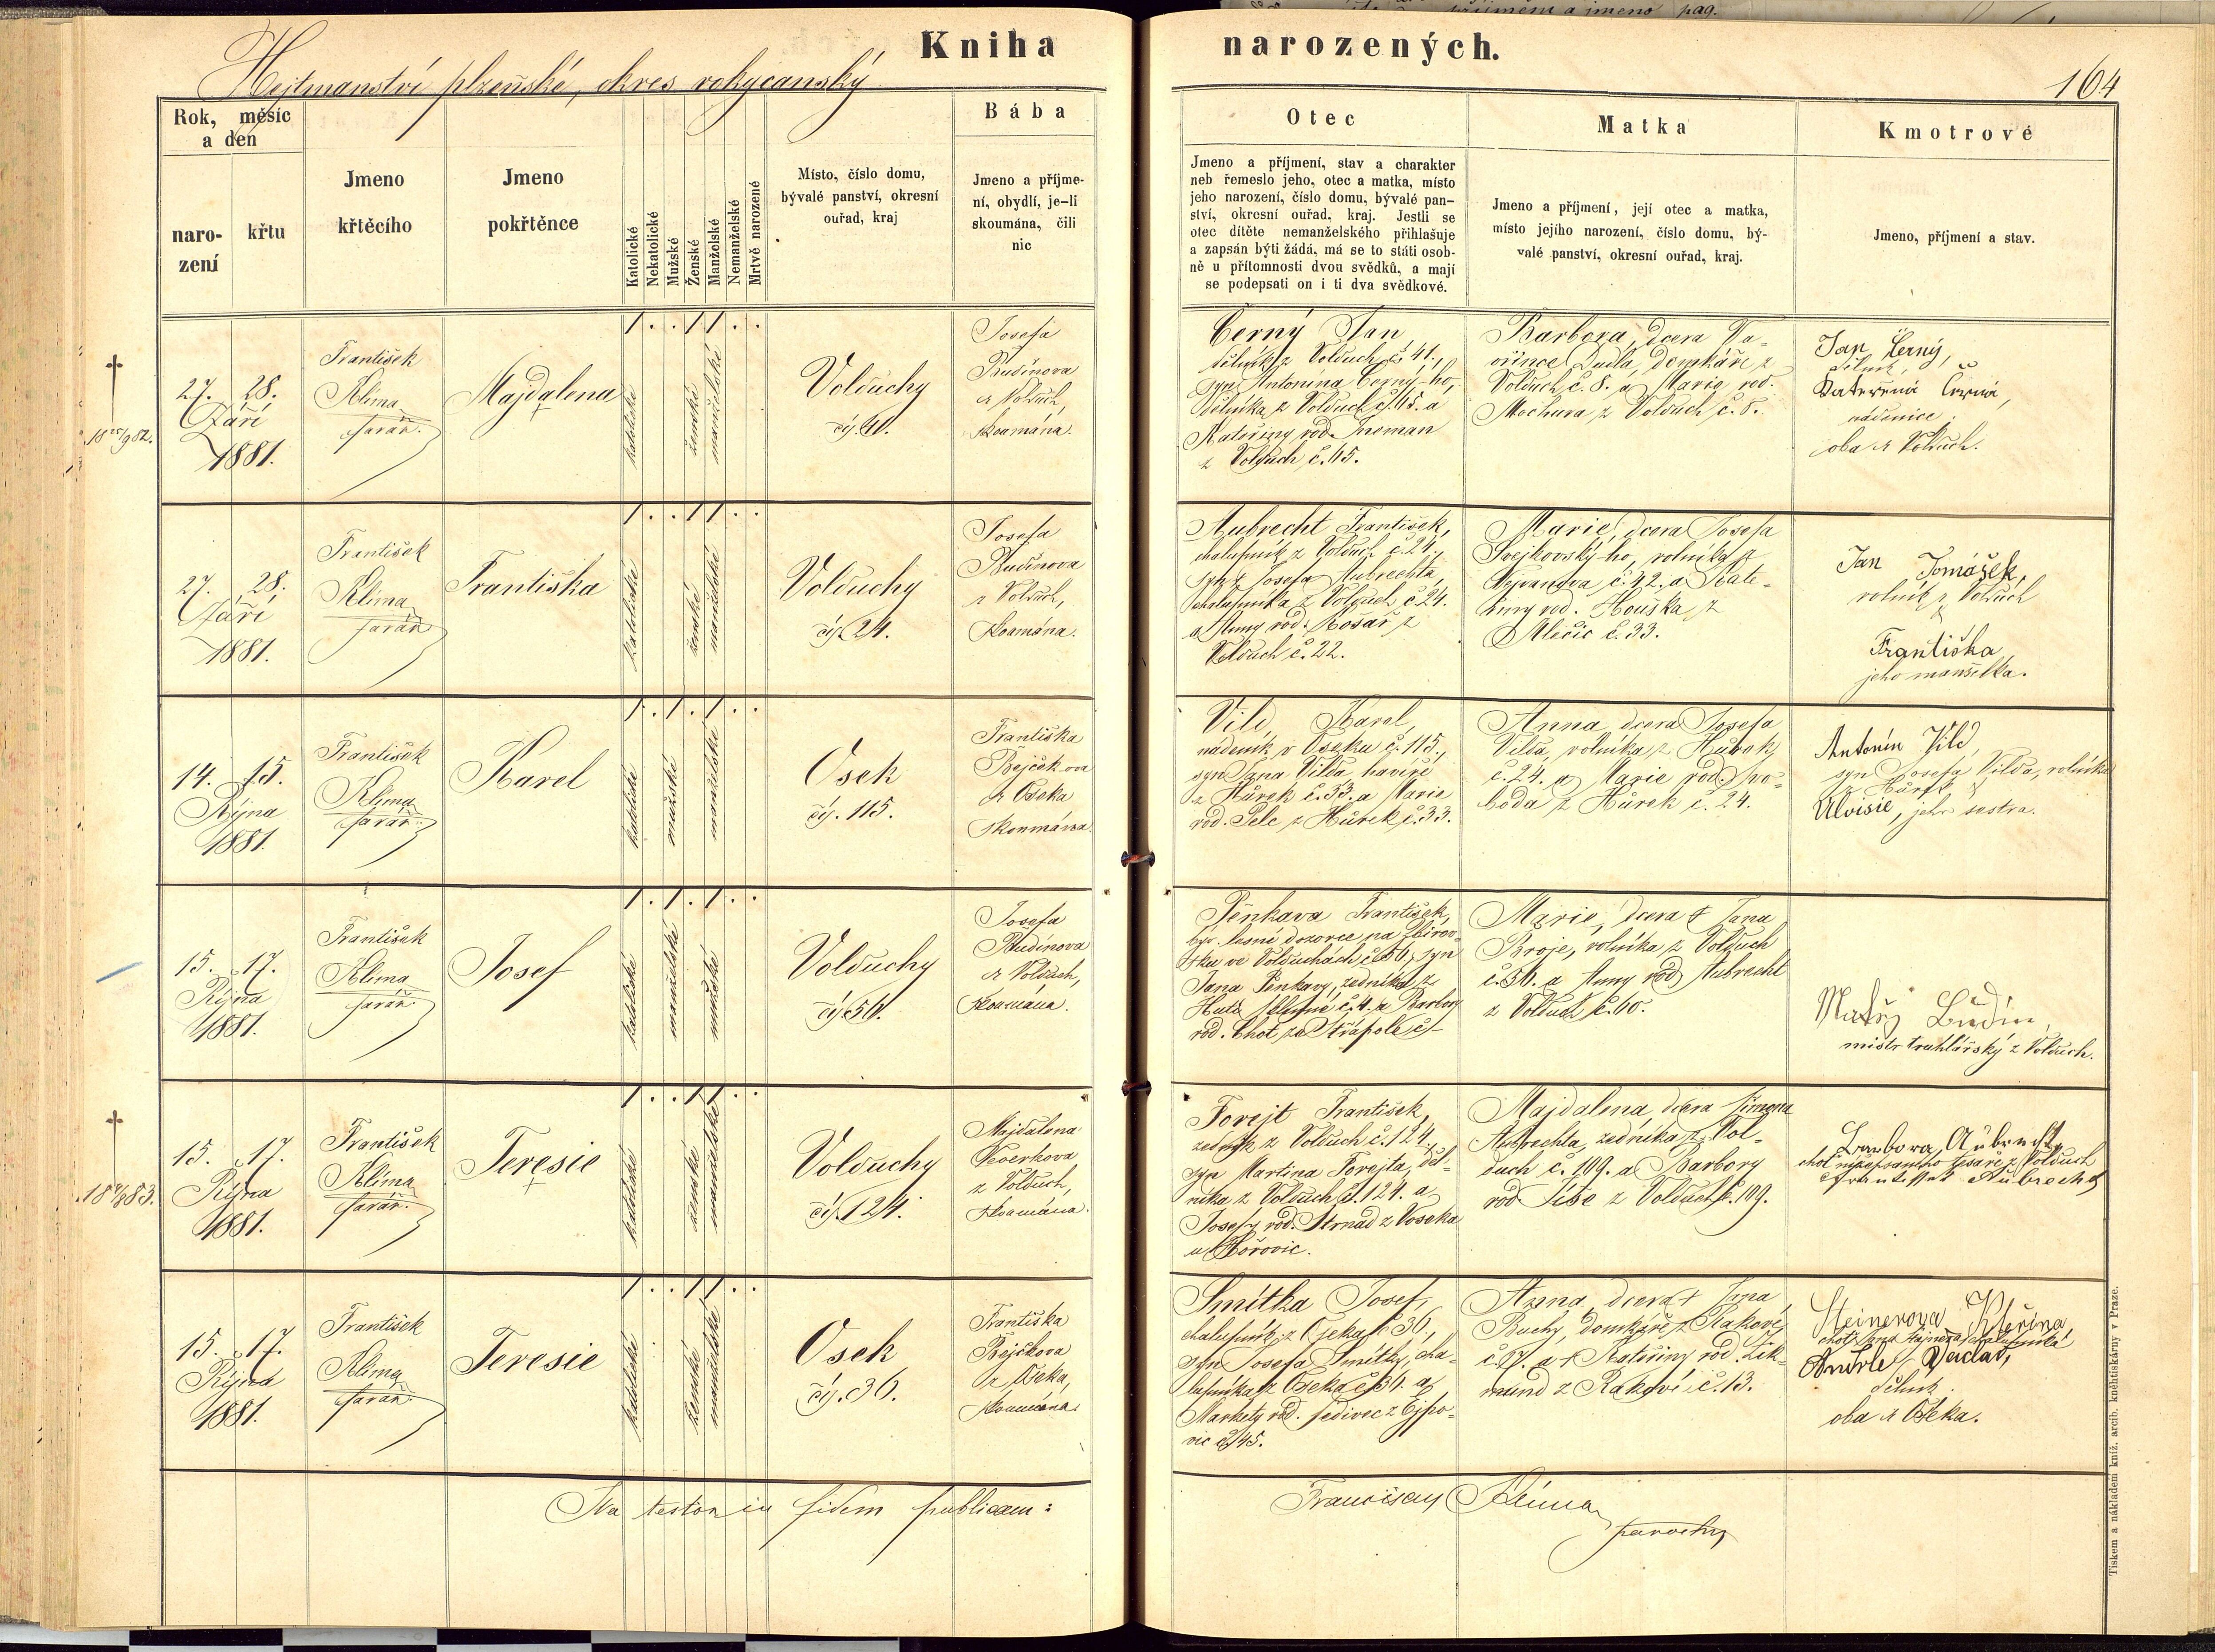 Kniha narozených.
Hejtmanství plzeňské, okres rokycanský
164
Rok, měsíc
a den
naro-
zení
křtu
Jmeno
křtěcího
Jmeno
pokřtěnce
Katolické
Nekatolické
Mužské
Ženské
Manželské
Nemanželské
Mrtvě narozené
Místo, číslo domu,
bývalé panství, okresní
ouřad, kraj
Bába
Jmeno a příjme-
ní, obydlí, je-li
skoumána, čili
nic
Otec
Jmeno a příjmení, stav a charakter
neb řemeslo jeho, otec a matka, místo
jeho narození, číslo domu, bývalé pan-
ství, okresní ouřad, kraj. Jestli se
otec dítěte nemanželského přihlašuje
a zapsán býti žádá, má se to státi osob-
ně u přítomnosti dvou svědků, a mají
se podepsati on i ti dva svědkové.
Matka
Jmeno a příjmení, její otec a matka,
místo jejího narození, číslo domu, bý-
valé panství, okresní ouřad, kraj.
Kmotrové
Jmeno, příjmení a stav.
27. 28.
Září
1881.
František
Klíma
farář.
Majdalena
katolické
ženské
manželské
Volduchy
čp. 41.
Josefa
Rudinova
z Volduch,
skoumána.
Černý Jan
dělník z Volduch č. 41.,
syn Antonína Černý-ho,
dělníka z Volduch č. 45. a
Kateřiny rod.
z Volduch č. 45.
Barbora, dcera Va-
vřince Dudla, domkáře z
Volduch č. 8. a Marie rod.
Mochura z Volduch č. 8.
Jan Černý,
dělník,
Kateřina Černá,
nádenice
oba z Volduch.
27. 28.
Září
1881.
František
Klíma
farář
Františka
katolické
ženské
manželské
Volduchy
čp. 24.
Josefa
Rudinova
z Volduch,
skoumána.
Aubrecht František,
chalupník z Volduch č. 24.,
syn Josefa Aubrechta,
chalupníka z Volduch č. 24.
a Anny rod. Kosař z
Volduch č. 22.
Marie, dcera Josefa
Svejkovský-ho, rolníka z
č. 42. a Kate-
řiny rod. Houška z
č. 33.
Jan Tomášek,
rolník z Volduch
&
Františka
jeho manželka.
14. 15.
Října
1881.
František
Klíma
farář.
Karel
katolické
mužské
manželské
Osek
čp. 115.
Františka
Bejčkova
z Oseka
skoumána.
Vild Karel,
nádeník v Oseku č. 115.,
syn Jana Vilda, havíře
z Hůrek č. 33. a Marie
rod. Pelc z Hůrek č. 33.
Anna, dcera Josefa
Vilda, rolníka z Hůrek
č. 24. a Marie rod. Svo-
boda z Hůrek č. 24.
Antonín Vild,
syn Josefa Vilda, rolníka
z Hůrek &
Aloisie, jeho sestra.
15. 17.
Října
1881.
František
Klíma
farář.
Josef
katolické
manželské
mužské
Volduchy
čp. 56.
Josefa
Rudinova
z Volduch,
skoumána.
Pěnkava František,
býv. lesní dozorce na Zbirov-
sku ve Volduchách č. 56, syn
Jana Pěnkavy, zedníka z
č. 4. a Barbory
rod. Chot
Marie, dcera † Jana
Broje, rolníka z Volduch
č. 56. a Anny rod. Aubrecht
z Volduch č. 60.
Matěj Budín,
mistr truhlářský z Volduch.
15. 17.
Října
1881.
František
Klíma
farář.
Teresie
katolické
ženské
manželské
Volduchy
čp. 124.
Majdalena
z Volduch,
skoumána.
Forejt František,
zedník z Volduch č. 124.,
syn Martina Forejta, děl-
níka z Volduch č. 124. a
Josefy rod. Strnad z Voseka
u Hořovic.
Majdalena, dcera Šimona
Aubrechta, zedníka z Vol-
duch č. 109. a Barbory
rod. Šíše z Volduch č. 109.
Barbora Aubrecht,
choť níže psaného z Volduch
František Aubrecht
15. 17.
Října
1881.
František
Klíma
farář.
Teresie
katolické
ženské
manželské
Osek
čp. 36.
Františka
Bejčkova
z Oseka,
skoumána.
Smitka Josef,
chalupník z Oseka č. 36.,
syn Josefa Smitky, cha-
lupníka z Oseka č. 36. a
Markety rod. Šedivec z Ejpo-
vic č. 45.
Anna, dcera † Jana
Buchy, domkáře z Rakové
č. 17. a † Kateřiny rod. Zik-
mund z Rakové č. 13.
Steinerova Kateřina,
Andrle Václav,
dělník
oba z Oseka.
Ita testor in fidem publicam:
Franciscus Klíma
parochus
Tiskem a nákladem kníž. arcib. knihtiskárny v Praze.